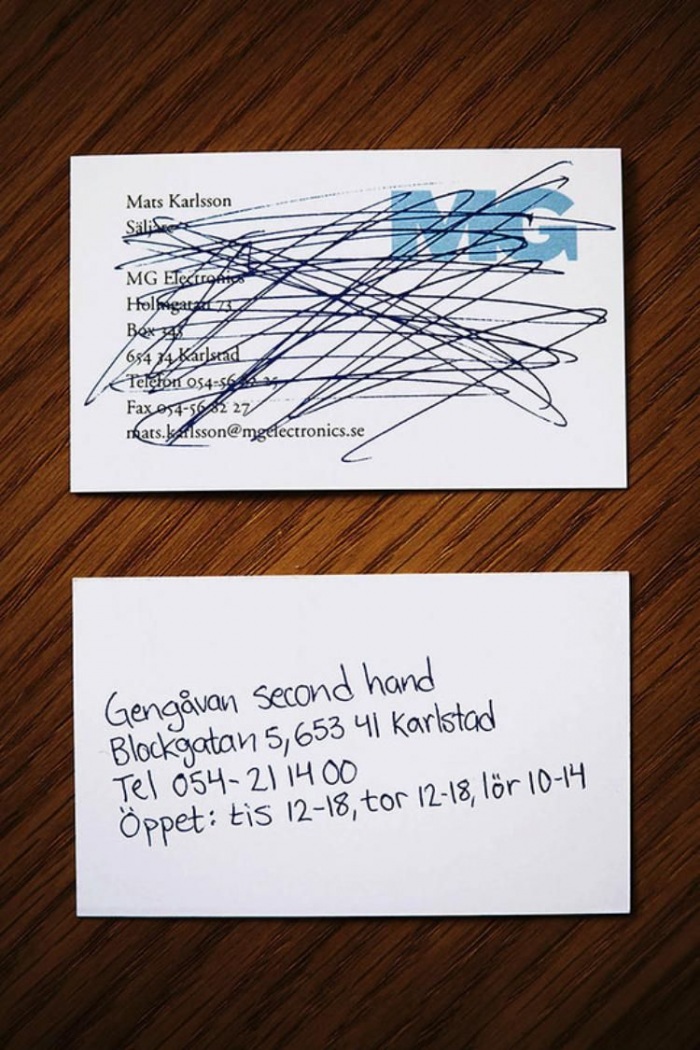 Mats Karlsson
MG
Säljare
MG Electronics
Holmgatan 73
Box 345
654 34 Karlstad
Telefon 054-56 82 25
Fax 054-56 82 27
mats.karlsson@mgelectronics.se
Gengåvan second hand
Blockgatan 5, 653 41 Karlstad
Tel 054-21 14 00
Öppet: tis 12-18, tor 12-18, lör 10-14